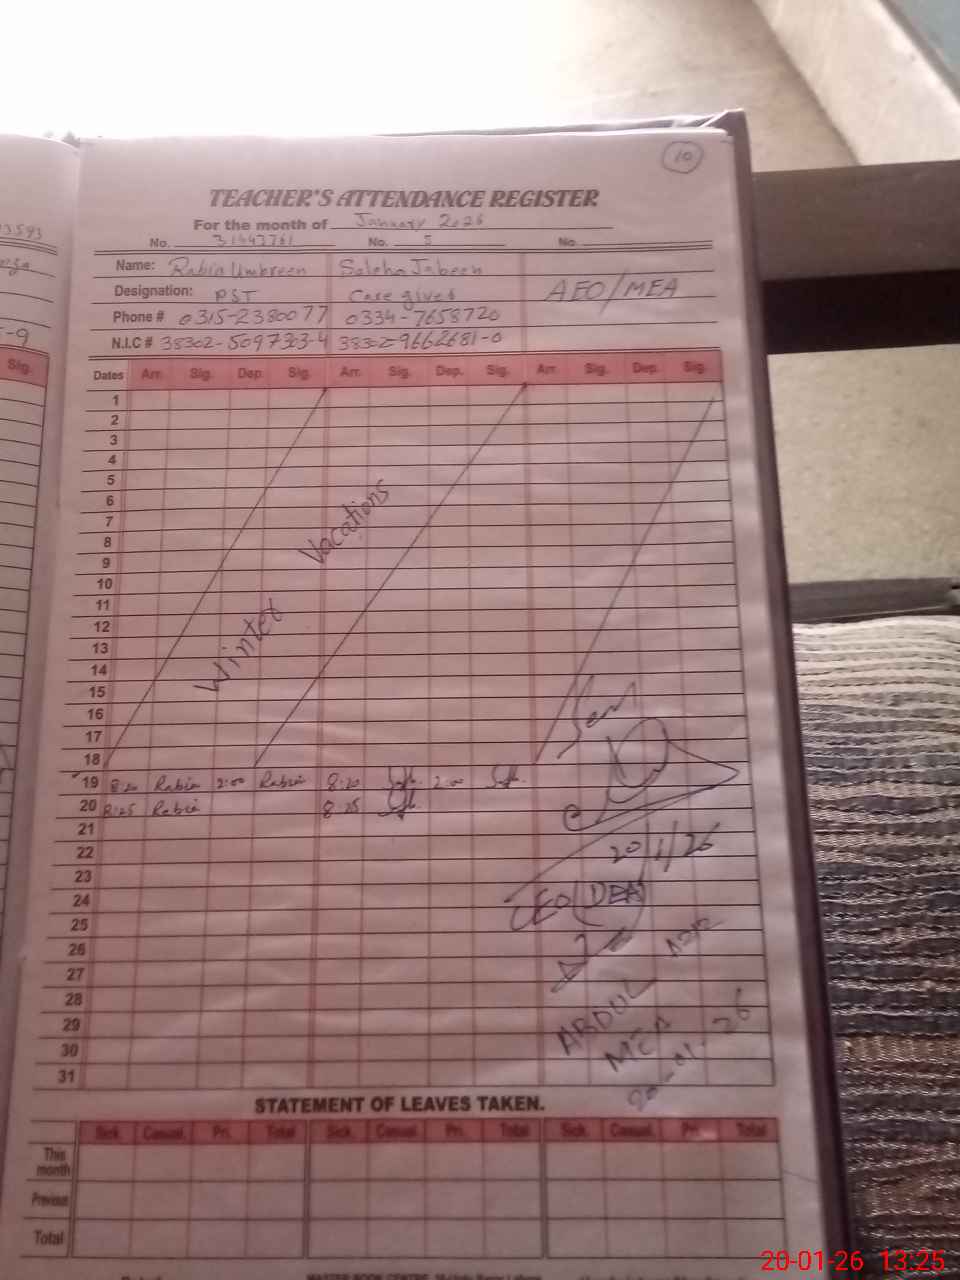 10
TEACHER'S ATTENDANCE REGISTER
For the month of January 2026
No. 31443761 No. 5 No.
Name: Rabia Umbreen Saleha Jabeen
Designation: PST Care giver AEO/MEA
Phone # 0315-2380077 0334-7658720
N.I.C # 38302-5097303-4 38302-9662681-0
Dates Arr. Sig. Dep. Sig. Arr. Sig. Dep. Sig. Arr. Sig. Dep. Sig.
1
2
3
4
5
6
7
8
9
10
11
12
13
14
15
16
17
18
Winter Vacations
19 8:20 Rabia 2:00 Rabia 8:20 2:00
20 8:25 Rabia 8:25
21
22 20/1/26
23
24 CEO (DEA)
25
26
27
28
29 ABDUL
30 MEA
31 20-01-26
STATEMENT OF LEAVES TAKEN.
Sick. Casual. Pri. Total Sick. Casual. Pri. Total Sick. Casual. Pri. Total
This month
Previous
Total
3593
-9
Sig.
20-01-26 13:25